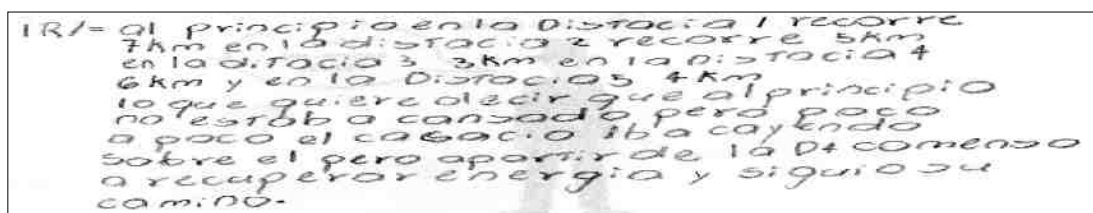 1R/= al principio en la Distacia 1 recorre
7km en la distacia 2 recorre 5km
en la ditacia 3 3km en la Distacia 4
6km y en la Distacia 5 4km
lo que quiere decir que al principio
no estaba cansado pero poco
a poco el casacio iba cayendo
sobre el pero apartir de la D4 comenso
a recuperar energia y siguio su
camino.